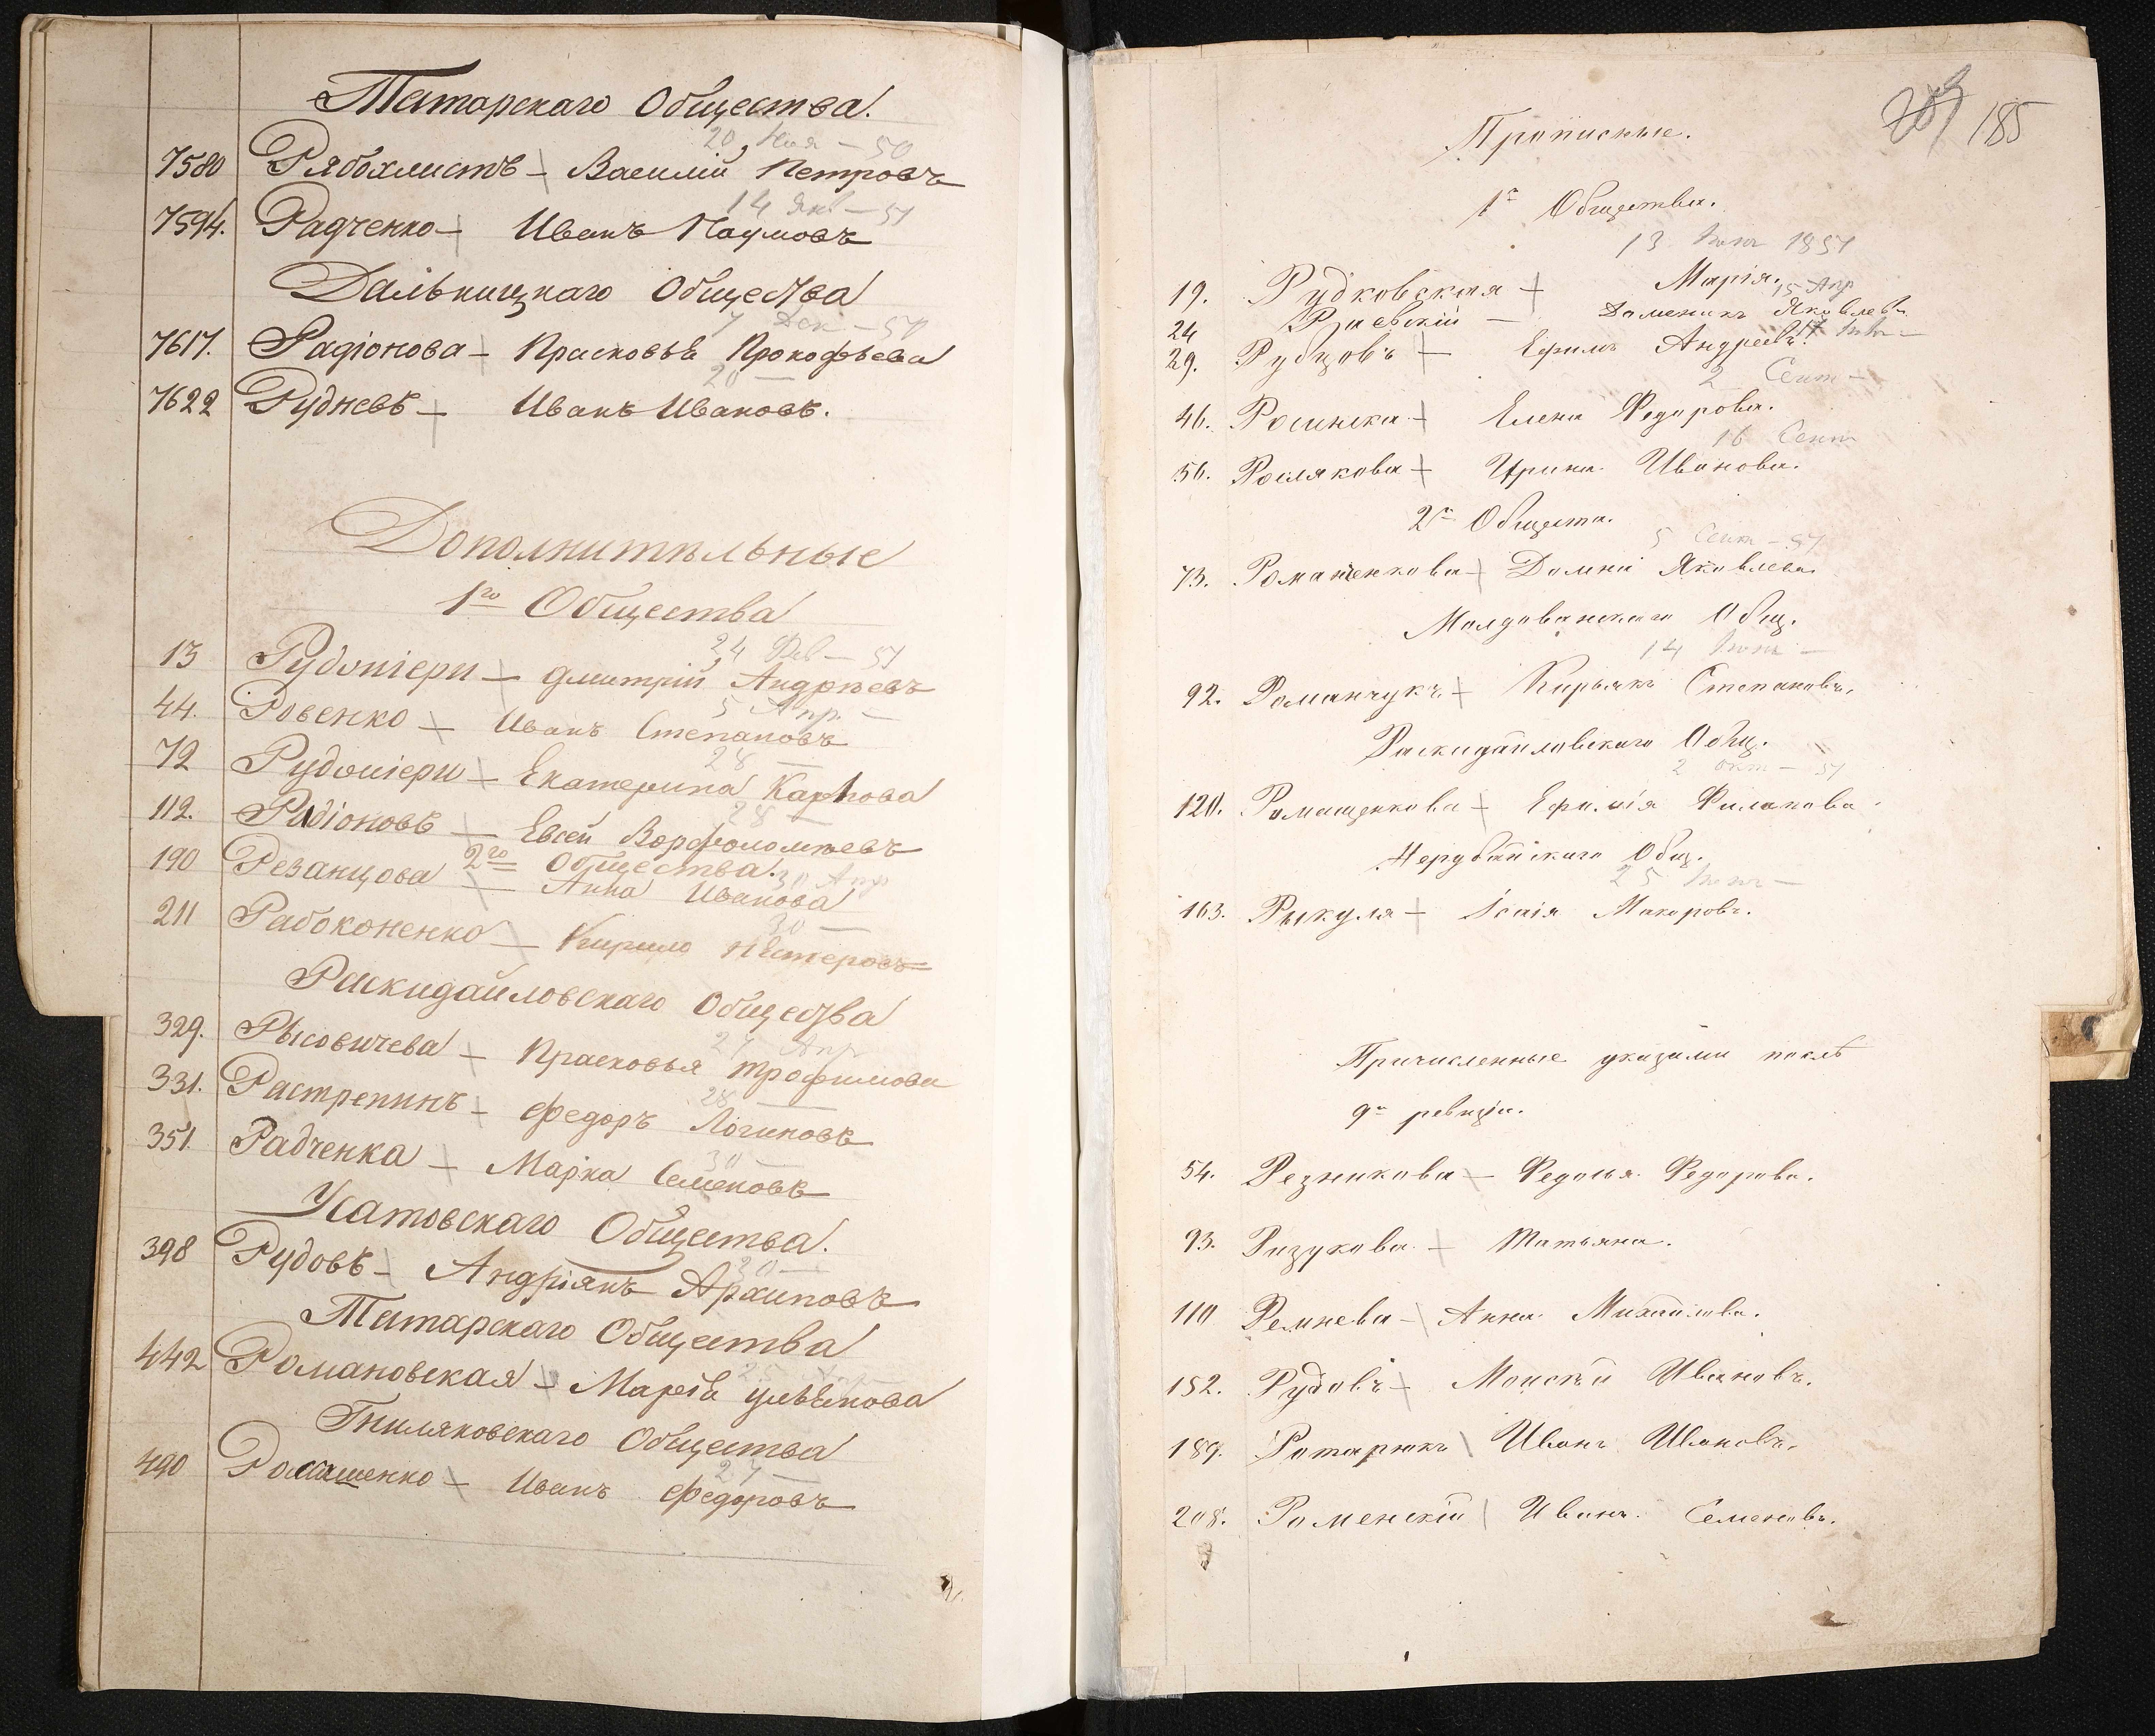 Татарскаго Общества.
20 Ноя — 50
7580 Рябохлистъ — Василій Петровъ
14 Янв — 51
7594. Радченко — Иванъ Наумовъ
Дальницкаго Общества
7 Дек — 50
7617. Радіонова — Прасковья Прокофьева
20 —
7622 Рудневъ — Иванъ Ивановъ.
Дополнительные
1го Общества
24 Фев — 51
13 Рудоніери — Дмитрій Андреевъ
5 Апр. —
44. Ровенко — Иванъ Степановъ
28 —
72 Рудоніери — Екатерина Карпова
28 —
112. Радіоновъ — Евсей Ворфоломеевъ
2го Общества.
30 Апр
190 Резанцова — Анна Иванова
30 —
211 Рабоконенко — Кирило Нестеровъ
Раскидайловскаго Общества
27 Апр
329. Рысовичева — Прасковья Трофимова
28 —
331. Растрепинъ — Федоръ Логиновъ
30 —
351. Радченка — Марка Семеновъ
Усатовскаго Общества.
30 —
398 Рудовъ — Андріянъ Архиповъ
Татарскаго Общества
442 Романовская — Марія Ульянова
Гниляковскаго Общества
27 —
490 Ромашенко — Иванъ Федоровъ
185
Прописные.
1го Общества.
13 1851
19. Рудковская — Марія.
15 Апр
24 Ржевскій — Доменикъ Яковлевъ
29. Рубцовъ — Ефимъ Андреевъ.
2 Сент —
46. Росинска — Елена Федорова.
16 Сент
56. Рослякова — Ирина Иванова.
2го Общества.
5 Сент — 51
73. Романенкова — Домна Яковлева
Молдованскаго Общ.
14 —
92. Романчукъ — Кирьякъ Степановъ.
Раскидайловскаго Общ.
2 Окт — 51
120. Ромащенкова — Ефимія Филипова.
Нерубайскаго Общ.
25 —
163. Рыкуля — Исаія Макаровъ.
Причисленные указами послѣ
9й ревизіи.
54. Резникова — Федосья Федорова.
93. Ризукова — Татьяна.
110 Ремнева — Анна Михайлова.
152. Рудовъ — Моисѣй Ивановъ.
189. Ротарюкъ Иванъ Ивановъ.
208. Роменскій Иванъ Семеновъ.